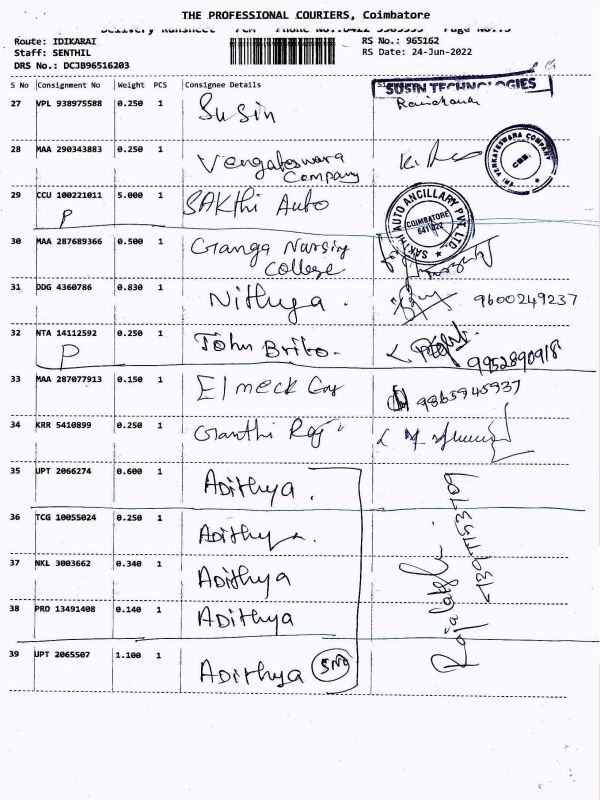 THE PROFESSIONAL COURIERS, Coimbatore
Route: IDIKARAI
Staff: SENTHIL
DRS No.: DCJB96516203
RS No.: 965162
RS Date: 24-Jun-2022
S No Consignment No Weight PCS Consignee Details
SUSIN TECHNOLOGIES
27 VPL 938975588 0.250 1 Susin
28 MAA 290343883 0.250 1 Vengateswara Company
SRI VENKATESWARA COMPANY CBE.
29 CCU 100221011 5.000 1 SAKthi Auto
P
SAKTHI AUTO ANCILLARY PVT. LTD. COIMBATORE 641 022
30 MAA 287689366 0.500 1 Ganga Nursing College
31 DDG 4360786 0.830 1 Nithya . 9600249237
32 NTA 14112592 0.250 1 John Brito. 9952890918
P
33 MAA 287077913 0.150 1 Elmeck 9865945937
34 KRR 5410899 0.250 1 Ganthi Raj
35 UPT 2066274 0.600 1 Adithya .
36 TCG 10055024 0.250 1 Adithya.
37 NKL 3003662 0.340 1 Adithya
38 PRO 13491408 0.140 1 Adithya
39 UPT 2065507 1.100 1 Adithya